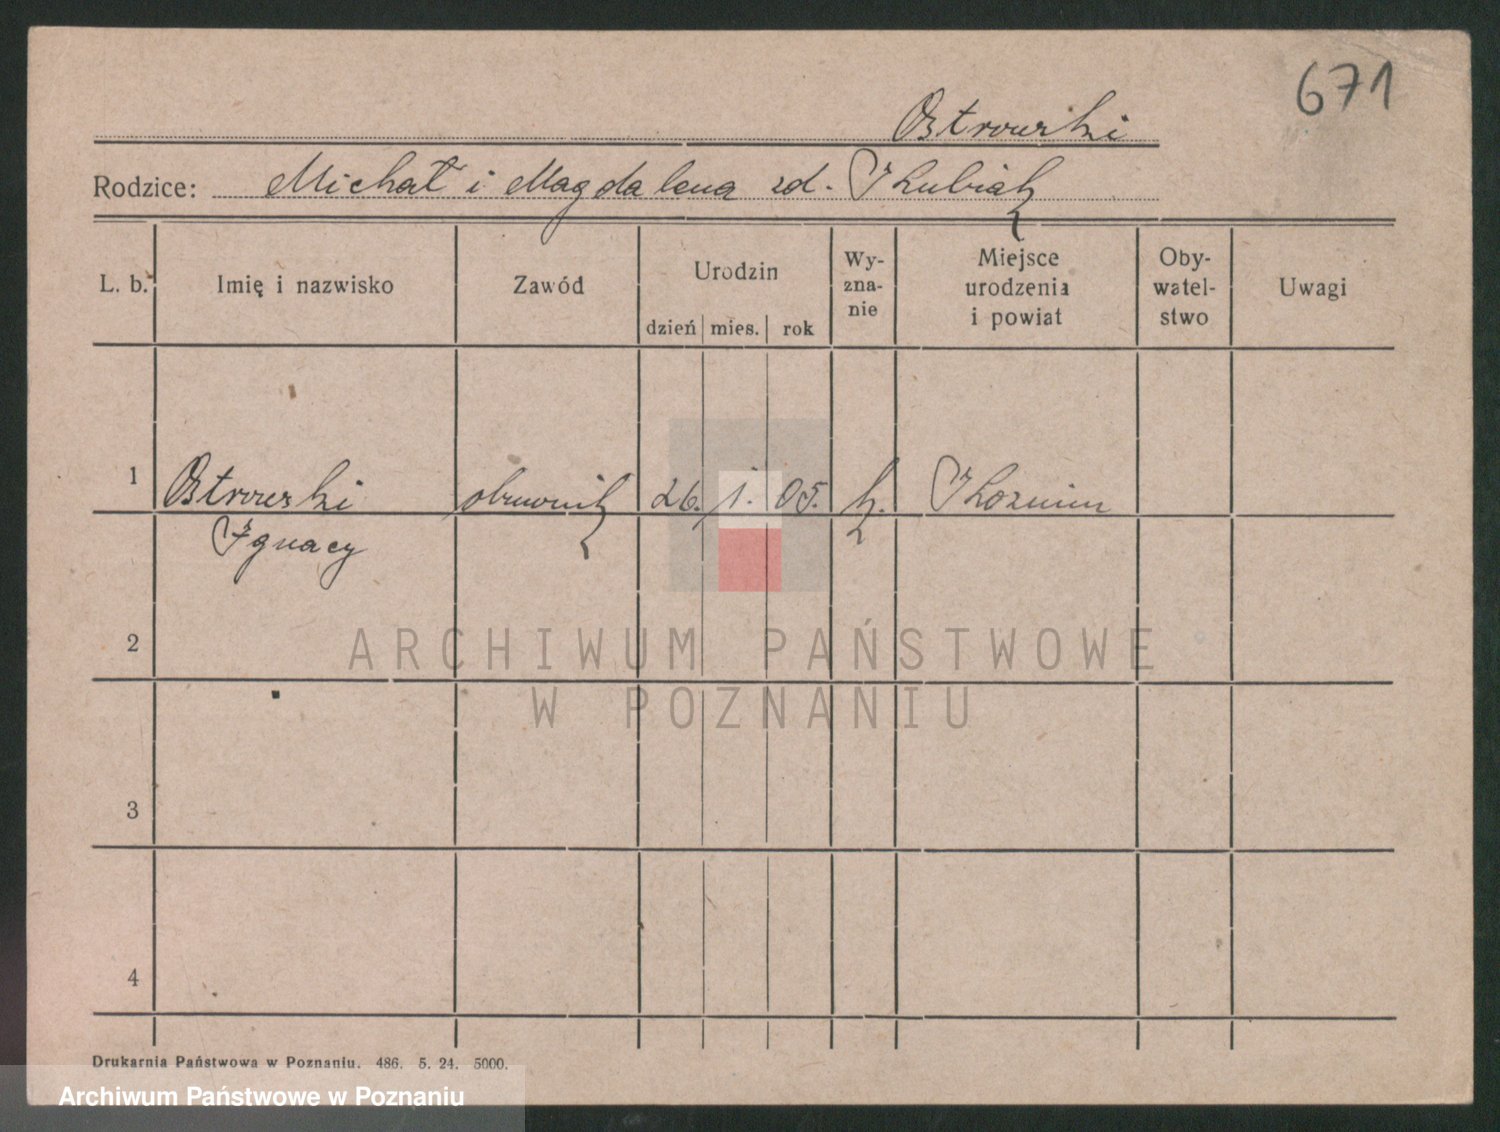 671
Ostrowski
Rodzice: Michał i Magdalena zd. Kubiak
L. b. Imię i nazwisko Zawód Urodzin dzień mies. rok Wy-zna-nie Miejsce urodzenia i powiat Oby-watel-stwo Uwagi
1 Ostrowski 26. 1. 05. k. Koźmin
Ignacy
2
ARCHIWUM PAŃSTWOWE
W POZNANIU
3
4
Drukarnia Państwowa w Poznaniu. 486. 5. 24. 5000.
Archiwum Państwowe w Poznaniu